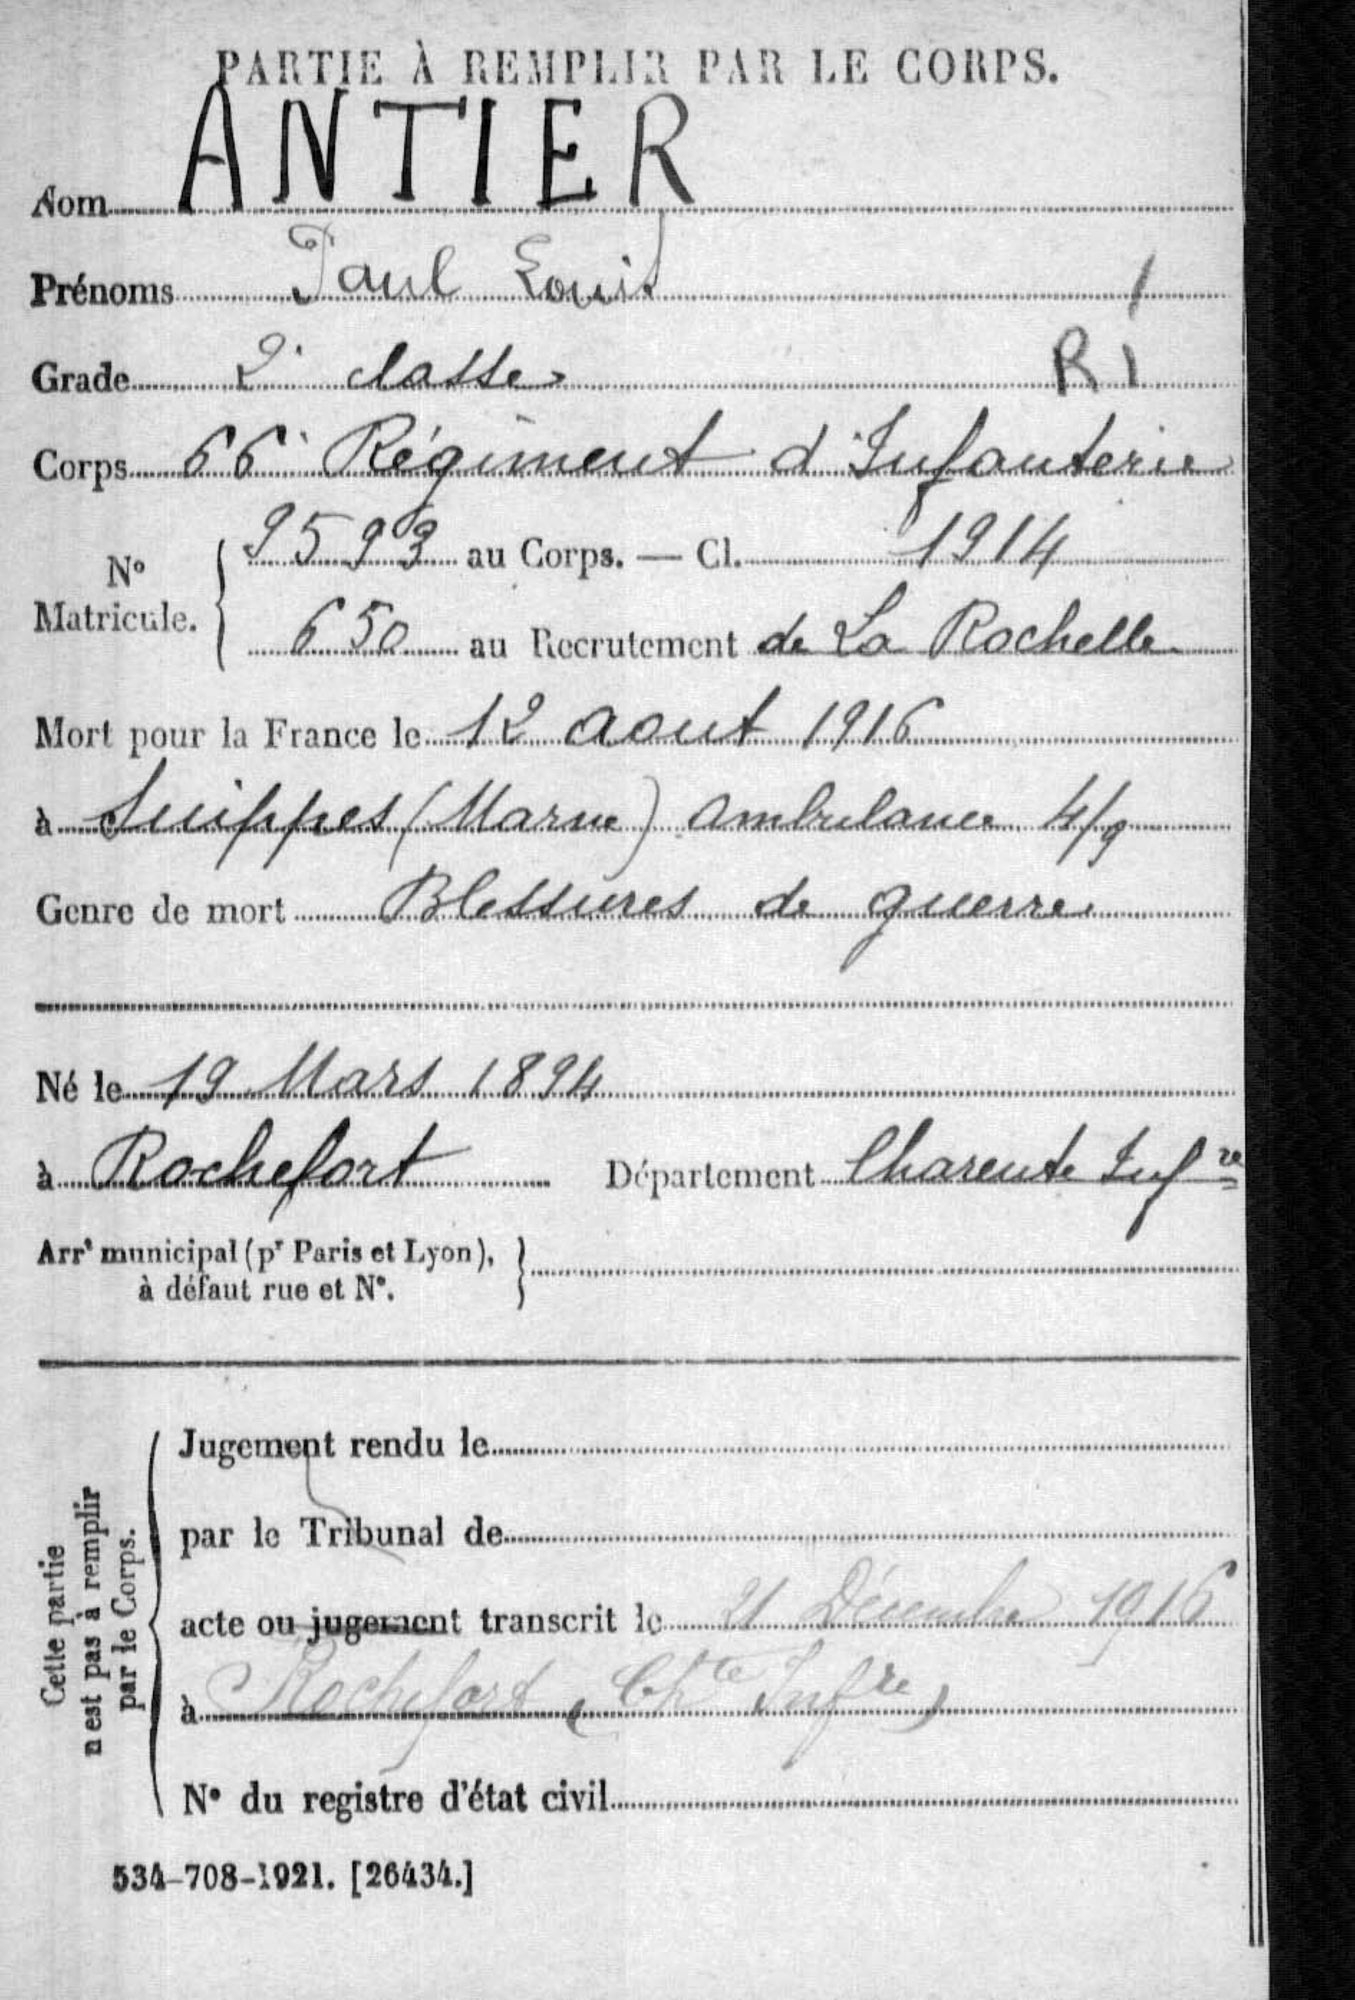 PARTIE À REMPLIR PAR LE CORPS.
Nom ANTIER
Prénoms Paul Louis
Grade 2e classe R I
Corps 66e Régiment d'Infanterie
N° Matricule. 9593 au Corps. — Cl. 1914
650 au Recrutement de La Rochelle
Mort pour la France le 12 aout 1916
à Suippes (Marne) ambulance 4/9
Genre de mort Blessures de guerre
Né le 19 Mars 1894
à Rochefort Département Charente Infre
Arrt municipal (pr Paris et Lyon),
à défaut rue et N°.
Cette partie
n'est pas à remplir
par le Corps.
Jugement rendu le
par le Tribunal de
acte ou jugement transcrit le 21 Décembre 1916
à Rochefort (Chte Infre)
N° du registre d'état civil
534-708-1921. [26434.]